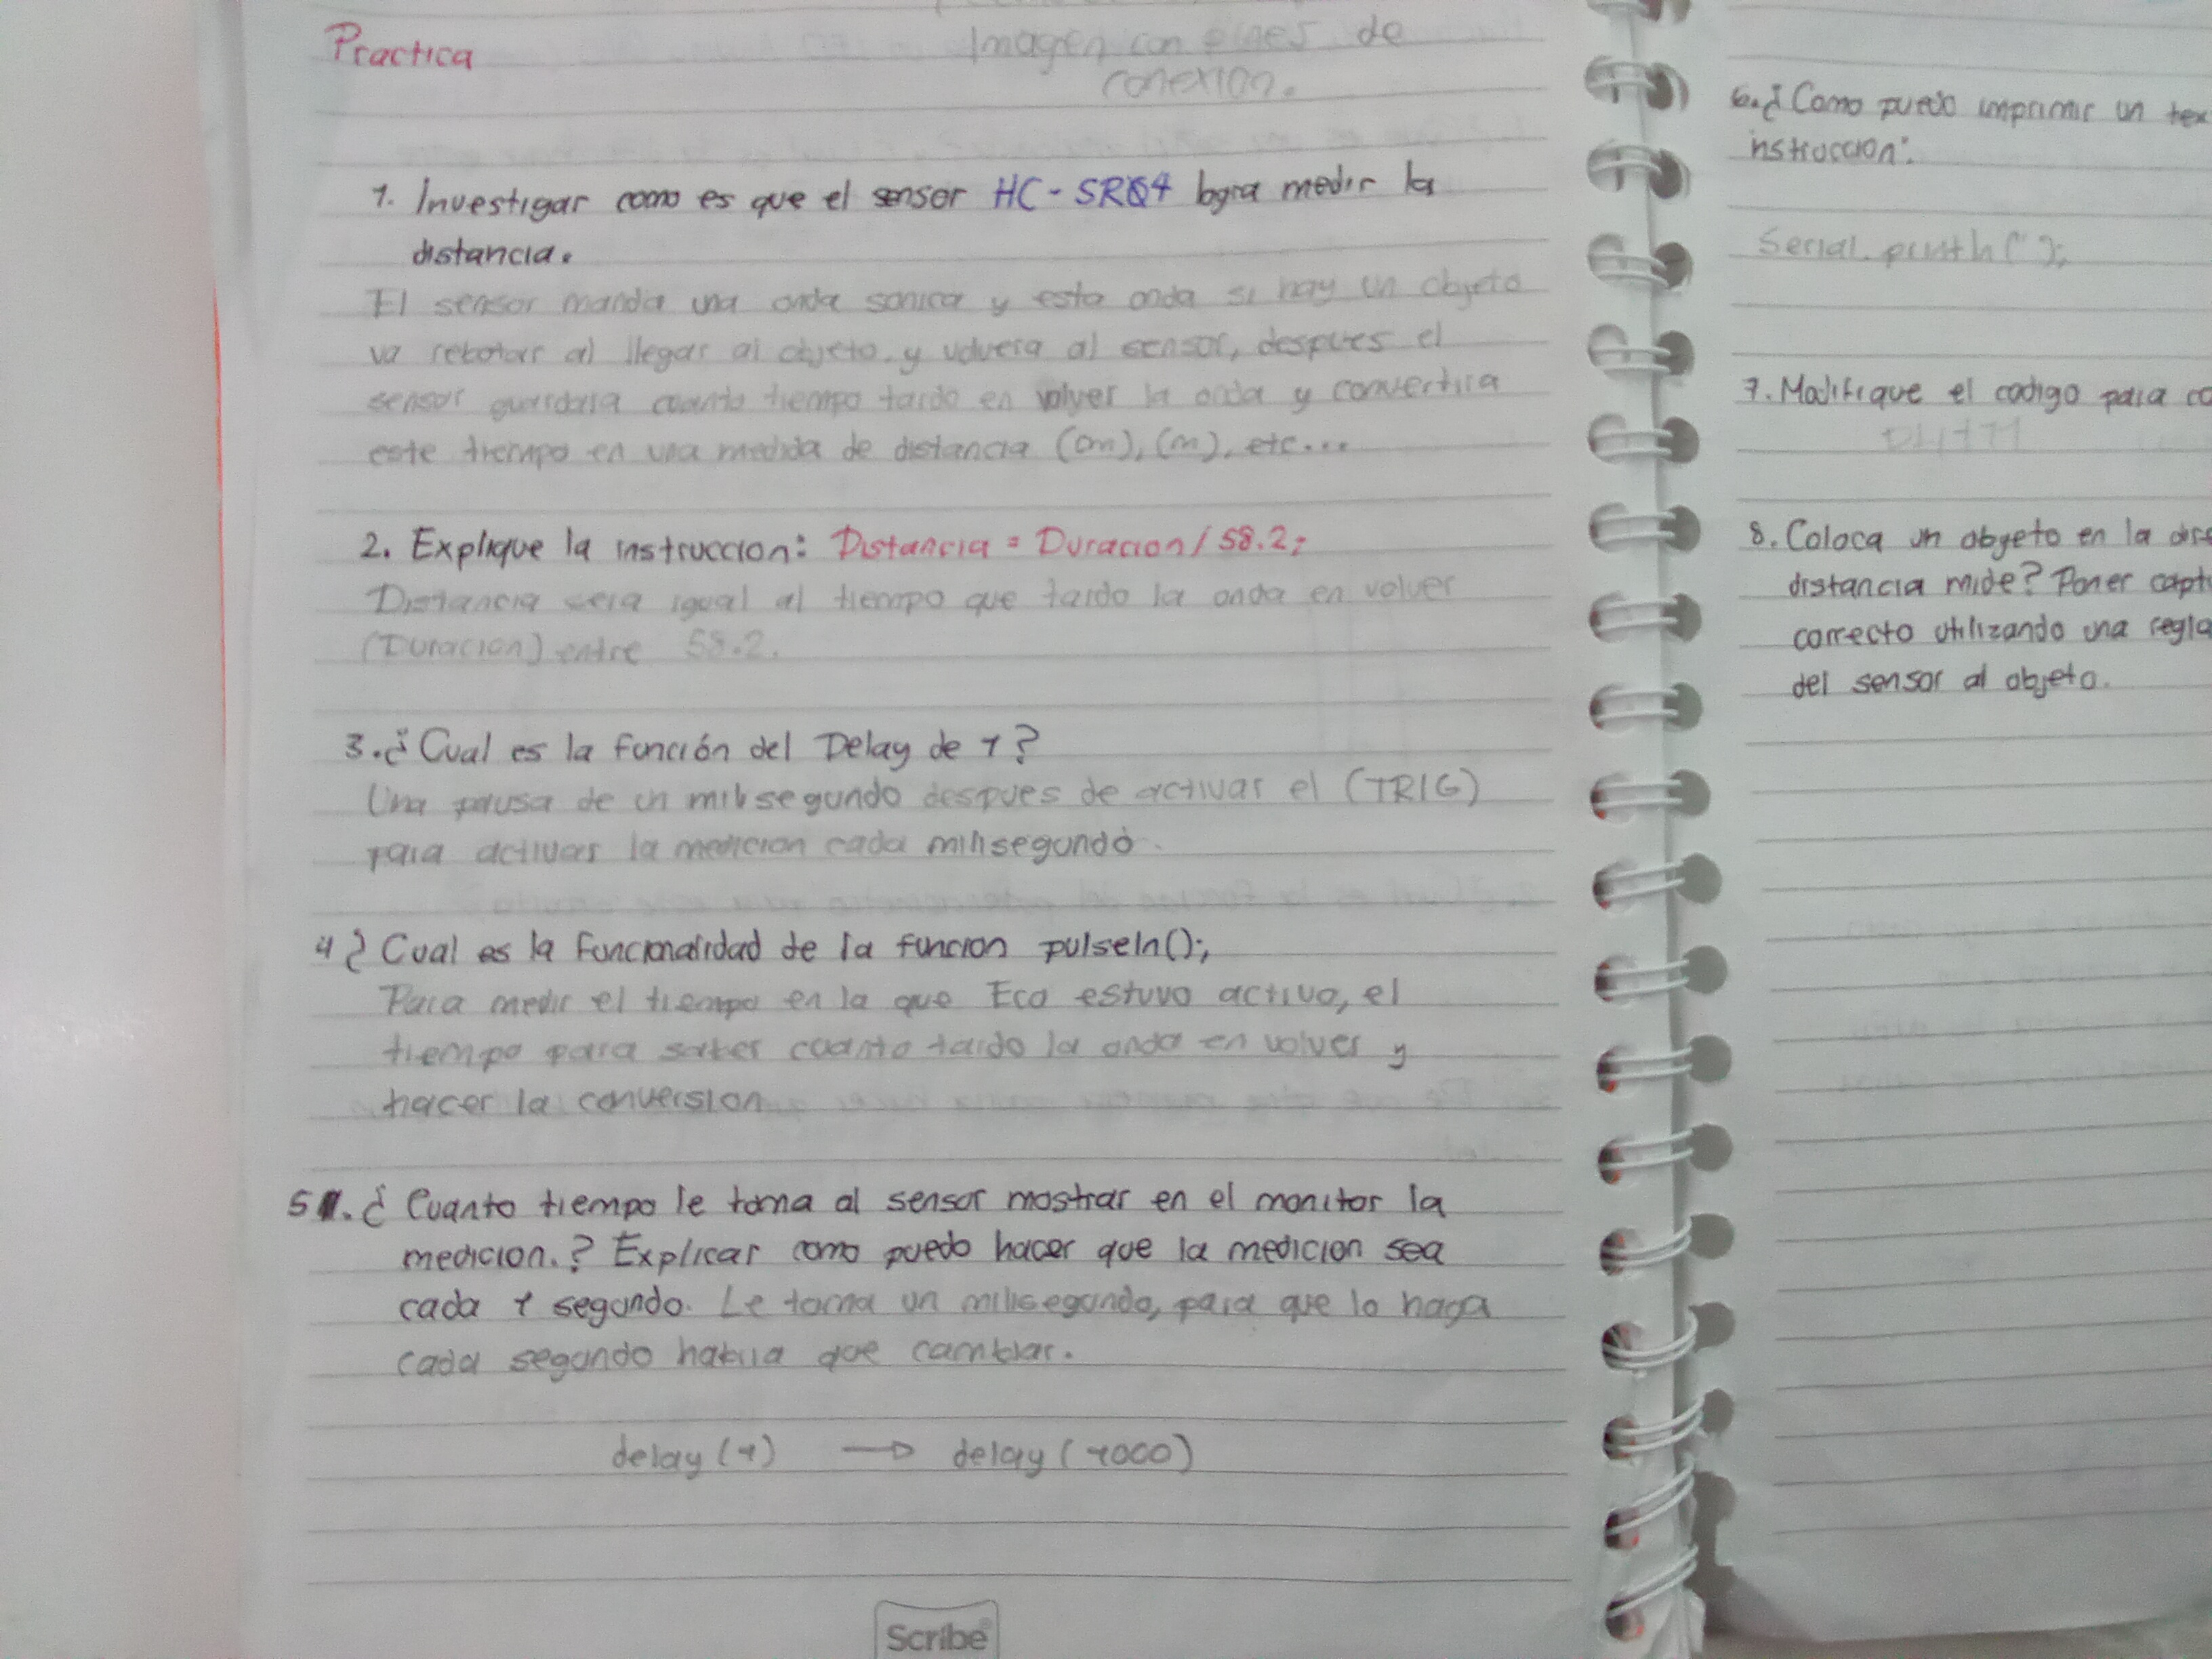 Practica
Imagen con pines de
conexion.
1. Investigar como es que el sensor HC-SR04 logra medir la
distancia.
El sensor manda una onda sonica y esta onda si hay un objeto
va rebotar al llegar al objeto, y volvera al sensor, despues el
sensor guardara cuanto tiempo tardo en volver la onda y convertira
este tiempo en una medida de distancia (cm), (m), etc...
2. Explique la instruccion: Distancia = Duracion / 58.2;
Distancia sera igual al tiempo que tardo la onda en volver
(Duracion) entre 58.2.
3. ¿Cual es la función del Delay de 1?
Una pausa de un milisegundo despues de activar el (TRIG)
para activar la medicion cada milisegundo.
4 ¿Cual es la funcionalidad de la funcion pulseIn();
Para medir el tiempo en la que Eco estuvo activo, el
tiempo para saber cuanto tardo la onda en volver y
hacer la conversion
5. ¿Cuanto tiempo le toma al sensor mostrar en el monitor la
medicion.? Explicar como puedo hacer que la medicion sea
cada 1 segundo. Le toma un milisegundo, para que lo haga
cada segundo habria que cambiar.
delay (1) → delay (1000)
Scribe
6. ¿Como puedo imprimir un tex
instruccion:
Serial.println(" ");
7. Modifique el codigo para co
8. Coloca un objeto en la dire
distancia mide? Poner capt
correcto utilizando una regla
del sensor al objeto.